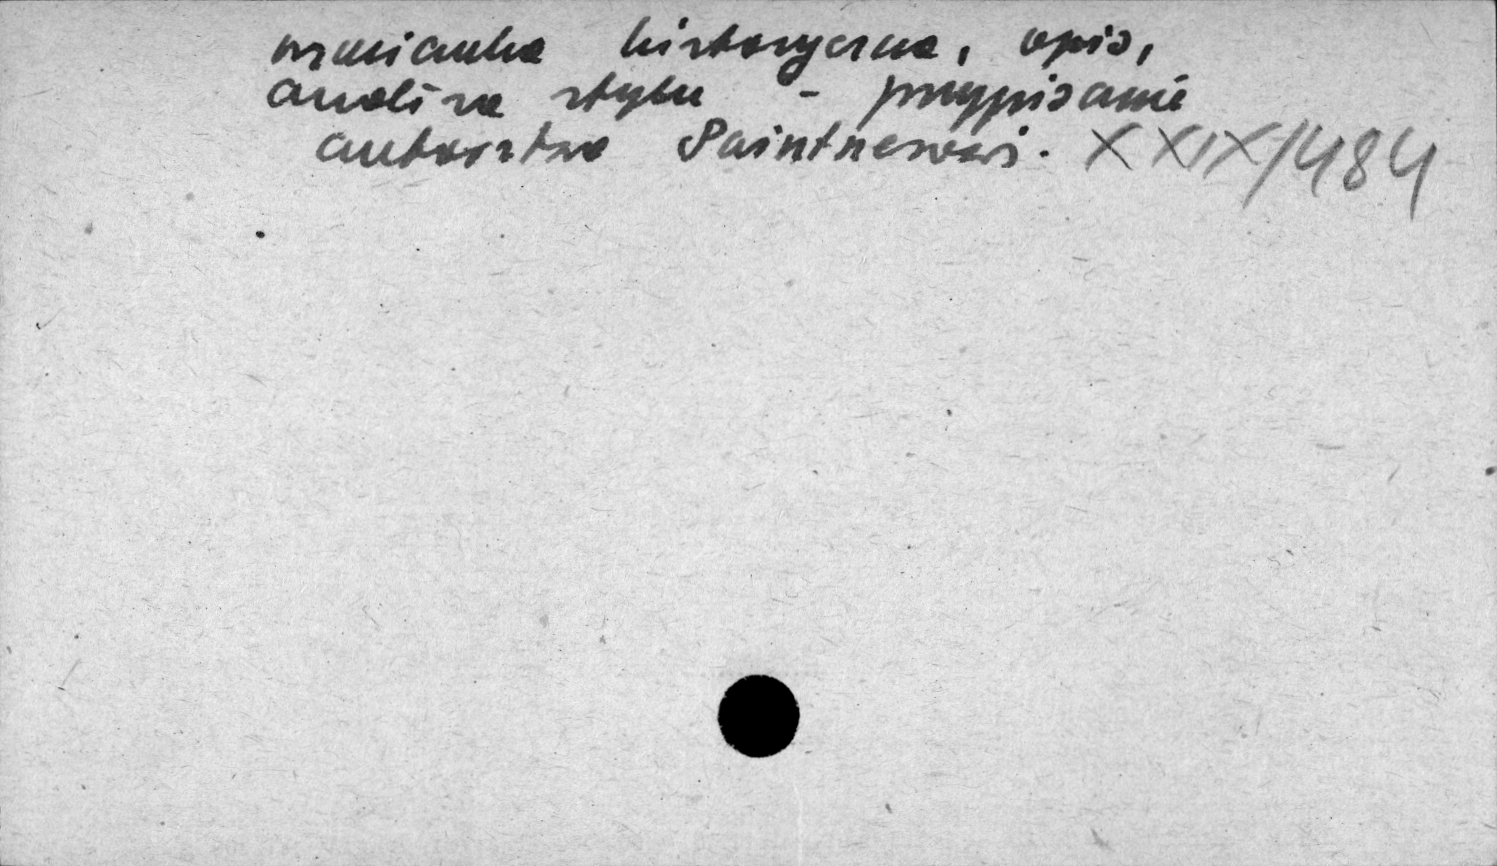 wzmianka historyczna, opis,
analiza stylu - przypisanie
autorstwa Saintnerowi. XXIX/484